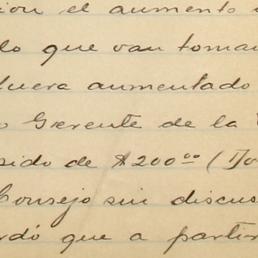 ion el aumento
lo que van toman
fuera aumentado
o Gerente de la
sido de $200.00 (Do
Consejo sin discus
rdó que a partir